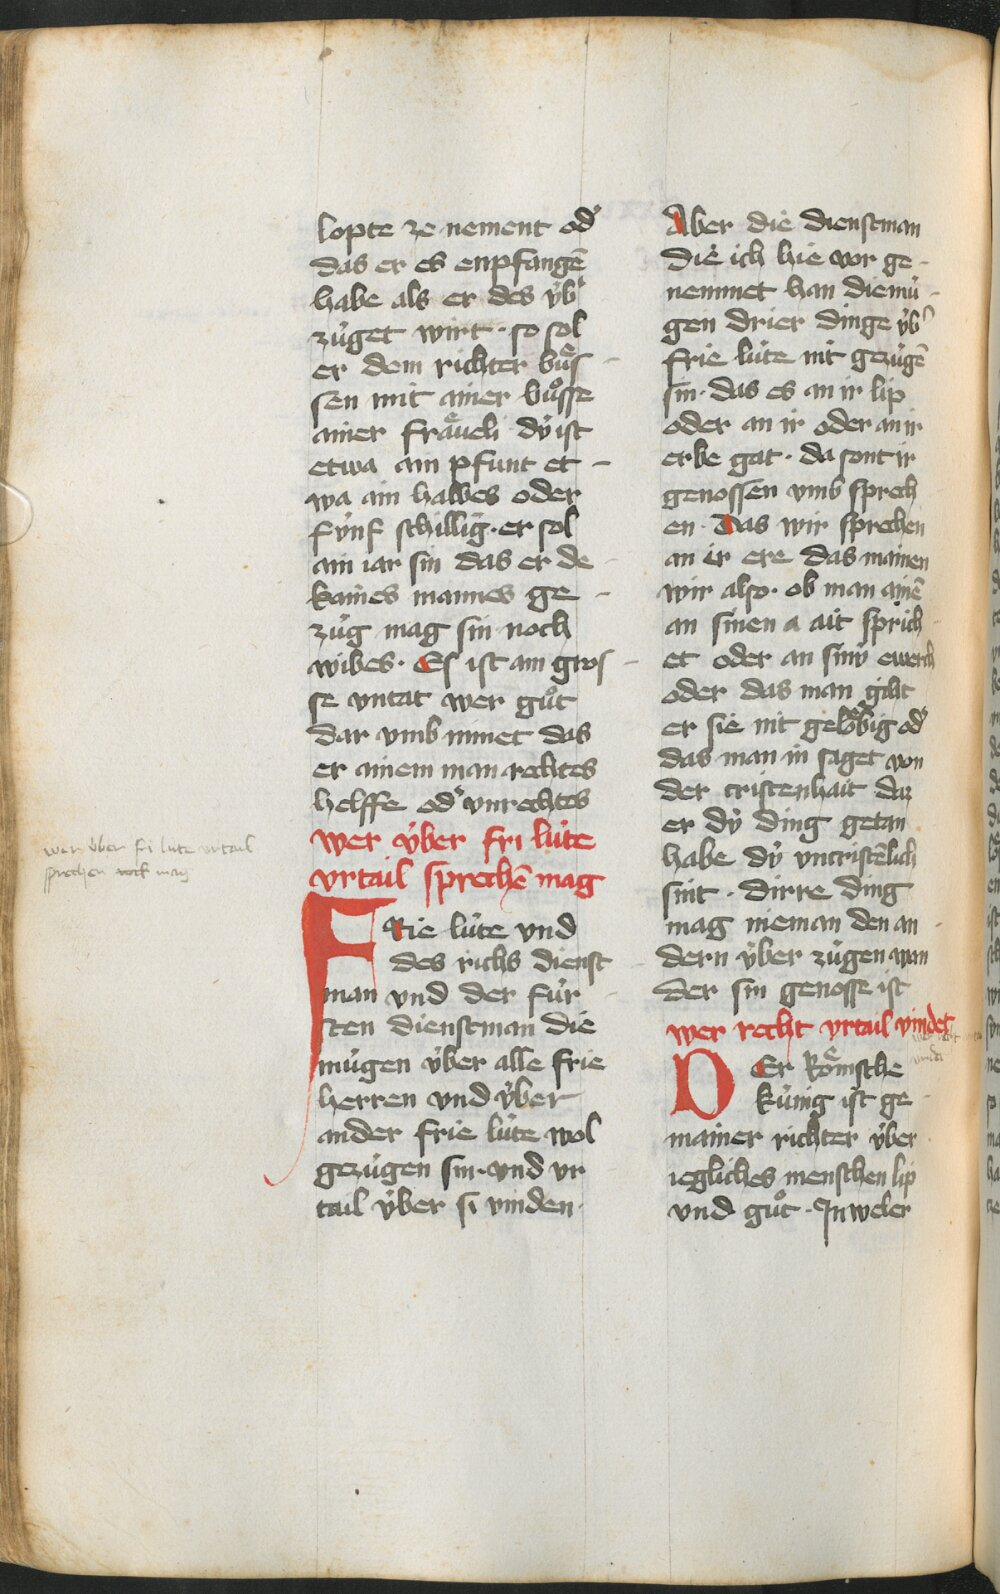 lopte ze nement od᾽
das er es enpfangē
habe als er des v̇b᾽
zu̇get wirt · so sol
er dem richter buͤs -
sen mit ainer buͦsse
ainer fraͤueli dy̍ ist
etwa ain pfunt et -
wa ain halbes oder
fv̇nf schillig · er sol
ain iar sin das er de -
kaines mannes ge -
zu̇g mag sin noch
wibes · Es ist ain gros -
se vntat wer guͦt
dar vmb nimet das
er ainem man rechtes
helffe od᾽ vnrechtes
wer v̇ber fri lu̇te
vrtail sprechē mag
FRie lu̇te vnd
des richs dienst
man vnd der fu̇r -
sten dienstman die
mu̇gen v̇ber alle frie
herren vnd v̇ber
ander frie lu̇te wol
gezu̇gen sin · vnd vr
tail v̇ber si vinden ·
wer v̇ber fri lute vrtail
sprechen mag
Aber die dienstman
die ich hie vor ge -
nemmet han die mu̇ -
gen drier dinge v̇b᾽
frie lu̇te nit gezu̇gē
sin · das es an ir lip
oder an ir oder an ir
erbe gat · da sont ir
genossen vmb sprech
en · Das wir sprechen
an ir ere das mainen
wir also · ob man ainē
an sinen a ait sprich -
et oder an siny̍ ewerch
oder das man giht
er sie nit geloͮbig od᾽
das man in saget von
der cristenhait daz
er dy̍ ding getan
habe dy̍ vncristēlich
sint · dirre ding
mag nieman den an -
dern v̇ber zu̇gen wan
der sin genosse ist
wer recht vrtail vindet
DEr Roͤmsche
ku̇nig ist ge -
mainer richter v̇ber
iegliches menschen lip
vnd guͦt · In weler